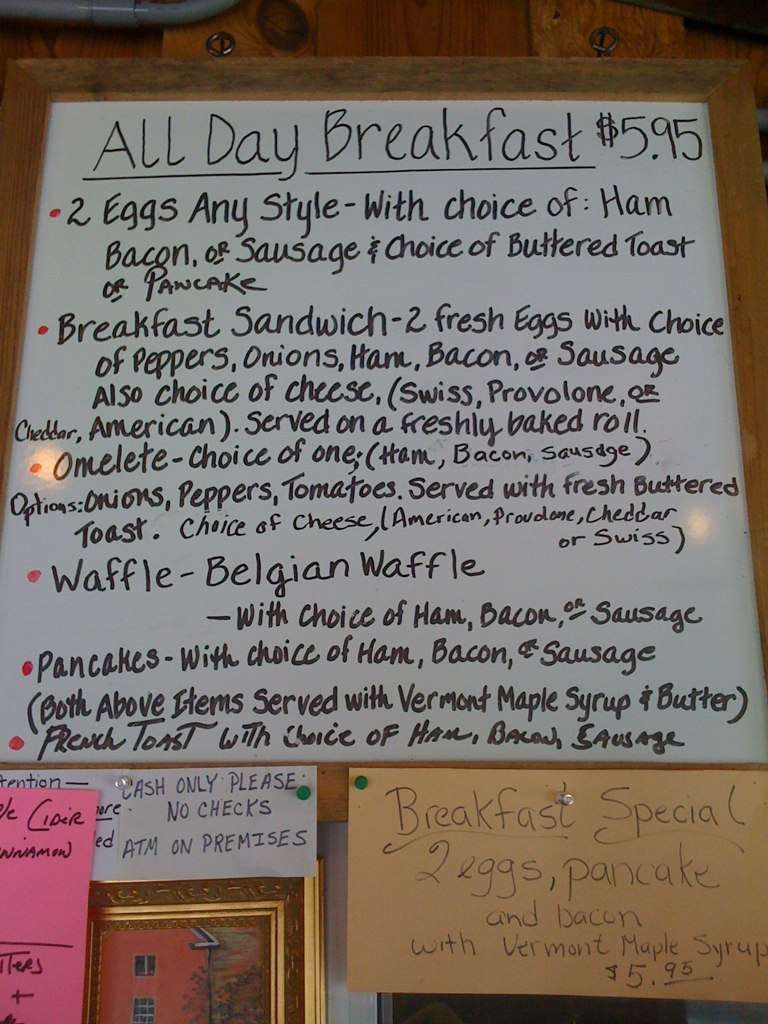 All Day Breakfast $5.95
• 2 Eggs Any Style - With choice of: Ham
Bacon, or Sausage & Choice of Buttered Toast
or Pancake
• Breakfast Sandwich - 2 fresh Eggs With Choice
of Peppers, Onions, Ham, Bacon, or Sausage
Also choice of cheese, (Swiss, Provolone, or
Cheddar, American). Served on a freshly baked roll.
• Omelete - Choice of one; (Ham, Bacon, Sausage)
Options: Onions, Peppers, Tomatoes. Served with fresh Buttered
Toast. Choice of Cheese, (American, Provolone, Cheddar
or Swiss)
• Waffle - Belgian Waffle
- With Choice of Ham, Bacon, or Sausage
• Pancakes - With choice of Ham, Bacon, or Sausage
(Both Above Items Served with Vermont Maple Syrup & Butter)
• French Toast With Choice of Ham, Bacon, Sausage
CASH ONLY PLEASE
NO CHECKS
ATM ON PREMISES
Cider
Breakfast Special
2 eggs, pancake
and bacon
with Vermont Maple Syrup
$5.95